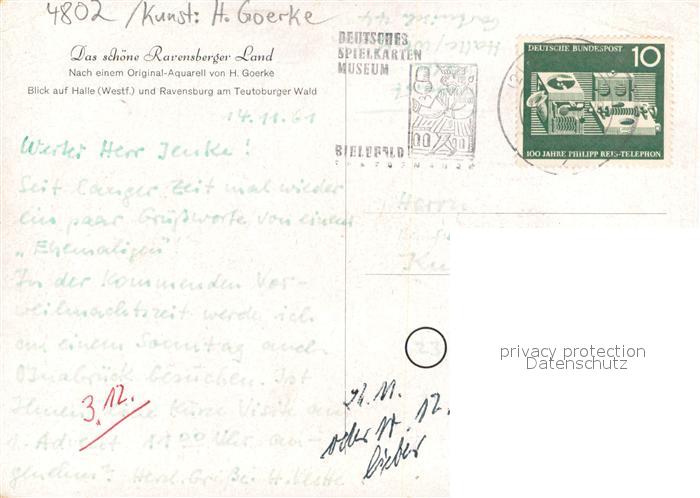 4802 / Kunst: H. Goerke
Das schöne Ravensberger Land
Nach einem Original-Aquarell von H. Goerke
Blick auf Halle (Westf.) und Ravensburg am Teutoburger Wald
14.11.61
Werter Herr Jenke!
Seit langer Zeit mal wieder
ein paar Grüßworte von einem
„Ehemaligen"!
In der kommenden Vor-
weihnachtszeit werde ich
an einem Sonntag auch
Osnabrück besuchen. Ist
Ihnen eine kurze Visite am
1. Advent 11 00 Uhr an-
genehm? Herzl. Grüße H.
3.12.
DEUTSCHES
SPIELKARTEN
MUSEUM
BIELEFELD
DEUTSCHE BUNDESPOST
10
100 JAHRE PHILIPP REIS-TELEPHON
Halle/W
Herrn
23
oder 12.
lieber
privacy protection
Datenschutz